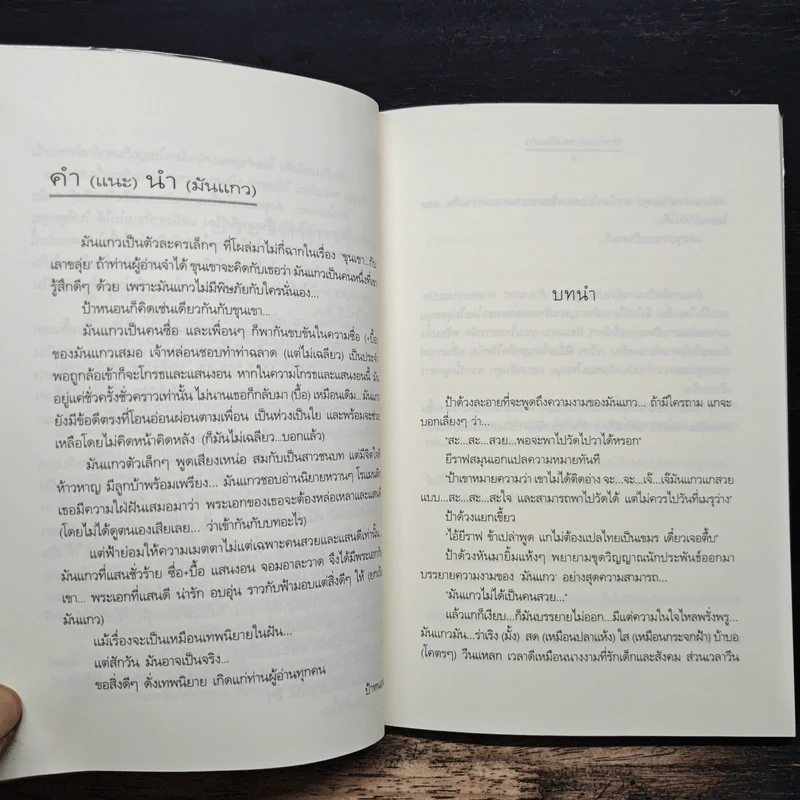 คำ (แนะ) นำ (มันแกว)
มันแกวเป็นตัวละครเล็กๆ ที่โผล่มาไม่กี่ฉากในเรื่อง 'ขุนเขา...กับ
เลาขลุ่ย' ถ้าท่านผู้อ่านจำได้ ขุนเขาจะคิดกับเธอว่า มันแกวเป็นคนหนึ่งที่เขา
รู้สึกดีๆ ด้วย เพราะมันแกวไม่มีพิษภัยกับใครนั่นเอง...
ป้าหนอนก็คิดเช่นเดียวกันกับขุนเขา...
มันแกวเป็นคนซื่อ และเพื่อนๆ ก็พากันขบขันในความซื่อ (+บื้อ)
ของมันแกวเสมอ เจ้าหล่อนชอบทำท่าฉลาด (แต่ไม่เฉลียว) เป็นประจำ
พอถูกล้อเข้าก็จะโกรธและแสนงอน หากในความโกรธและแสนงอนนี้ มัน
อยู่แค่ชั่วครั้งชั่วคราวเท่านั้น ไม่นานเธอก็กลับมา (บื้อ) เหมือนเดิม...มันแกว
ยังมีข้อดีตรงที่โอนอ่อนผ่อนตามเพื่อน เป็นห่วงเป็นใย และพร้อมจะช่วย
เหลือโดยไม่คิดหน้าคิดหลัง (ก็มันไม่เฉลียว...บอกแล้ว)
มันแกวตัวเล็กๆ พูดเสียงเหน่อ สมกับเป็นสาวชนบท แต่มีจิตใจที่
ห้าวหาญ มีลูกบ้าพร้อมเพรียง... มันแกวชอบอ่านนิยายหวานๆ โรแมนติก
เธอมีความใฝ่ฝันเสมอมาว่า พระเอกของเธอจะต้องหล่อเหลาและแสนดี
(โดยไม่ได้ดูตนเองเสียเลย... ว่าเข้ากันกับบทอะไร)
แต่ฟ้าย่อมให้ความเมตตาไม่แต่เฉพาะคนสวยและแสนดีเท่านั้น
มันแกวที่แสนชั่วร้าย ซื่อ+บื้อ แสนงอน จอมอาละวาด จึงได้มีพระเอกกับ
เขา... พระเอกที่แสนดี น่ารัก อบอุ่น ราวกับฟ้ามอบแต่สิ่งดีๆ ให้
มันแกว)
แม้เรื่องจะเป็นเหมือนเทพนิยายในฝัน...
แต่สักวัน มันอาจเป็นจริง...
ขอสิ่งดีๆ ดั่งเทพนิยาย เกิดแก่ท่านผู้อ่านทุกคน
ป้าหนอน
บทนำ
ป้าด้วงละอายที่จะพูดถึงความงามของมันแกว... ถ้ามีใครถาม แกจะ
บอกเลี่ยงๆ ว่า...
'สะ...สะ...สวย...พอจะพาไปวัดไปวาได้หรอก'
ยีราฟสมุนเอกแปลความหมายทันที
'ป้าเขาหมายความว่า เขาไม่ได้ติดอ่าง จะ...จะ...เจ๊...เจ๊มันแกวแกสวย
แบบ...สะ...สะ...สะใจ และสามารถพาไปวัดได้ แต่ไม่ควรไปวันที่เมรุว่าง'
ป้าด้วงแยกเขี้ยว
'ไอ้ยีราฟ ข้าเปล่าพูด แกไม่ต้องแปลไทยเป็นเขมร เดี๋ยวเจอตื้บ'
ป้าด้วงหันมายิ้มแห้งๆ พยายามขุดวิญญาณนักประพันธ์ออกมา
บรรยายความงามของ 'มันแกว' อย่างสุดความสามารถ...
'มันแกวไม่ได้เป็นคนสวย...'
แล้วแกก็เงียบ...ก็มันบรรยายไม่ออก...มีแต่ความในใจไหลพรั่งพรู...
มันแกวมัน...ร่าเริง (มั้ง) สด (เหมือนปลาแห้ง) ใส (เหมือนกระจกฝ้า) บ้าบอ
(โคตรๆ) วีนแหลก เวลาดีเหมือนนางงามที่รักเด็กและสังคม ส่วนเวลาวีน